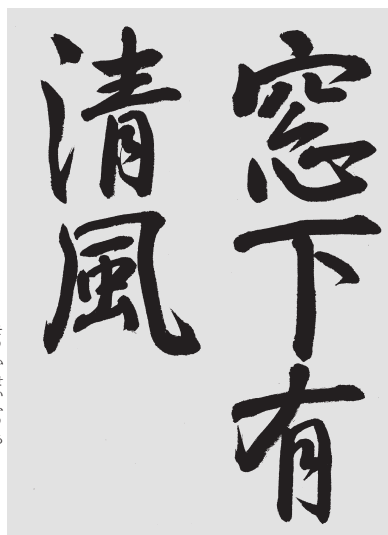 窓下有
清風